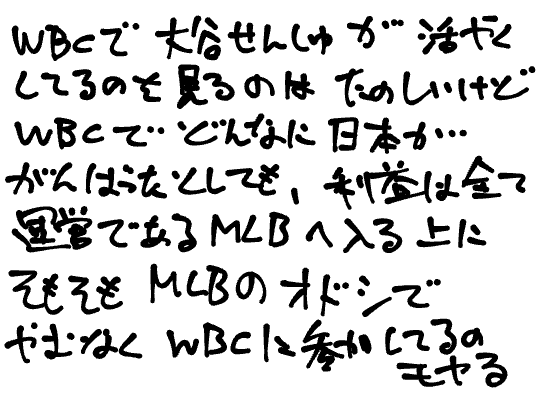 WBCで 大谷せんしゅが 活やく
してるのを見るのは たのしいけど
WBCで‥どんなに日本が…
がんばろうたとしても、利益は全て
運営であるMLBへ入る上に
そもそも MLBのオドシで
やむなく WBCに参加してるの
モヤる